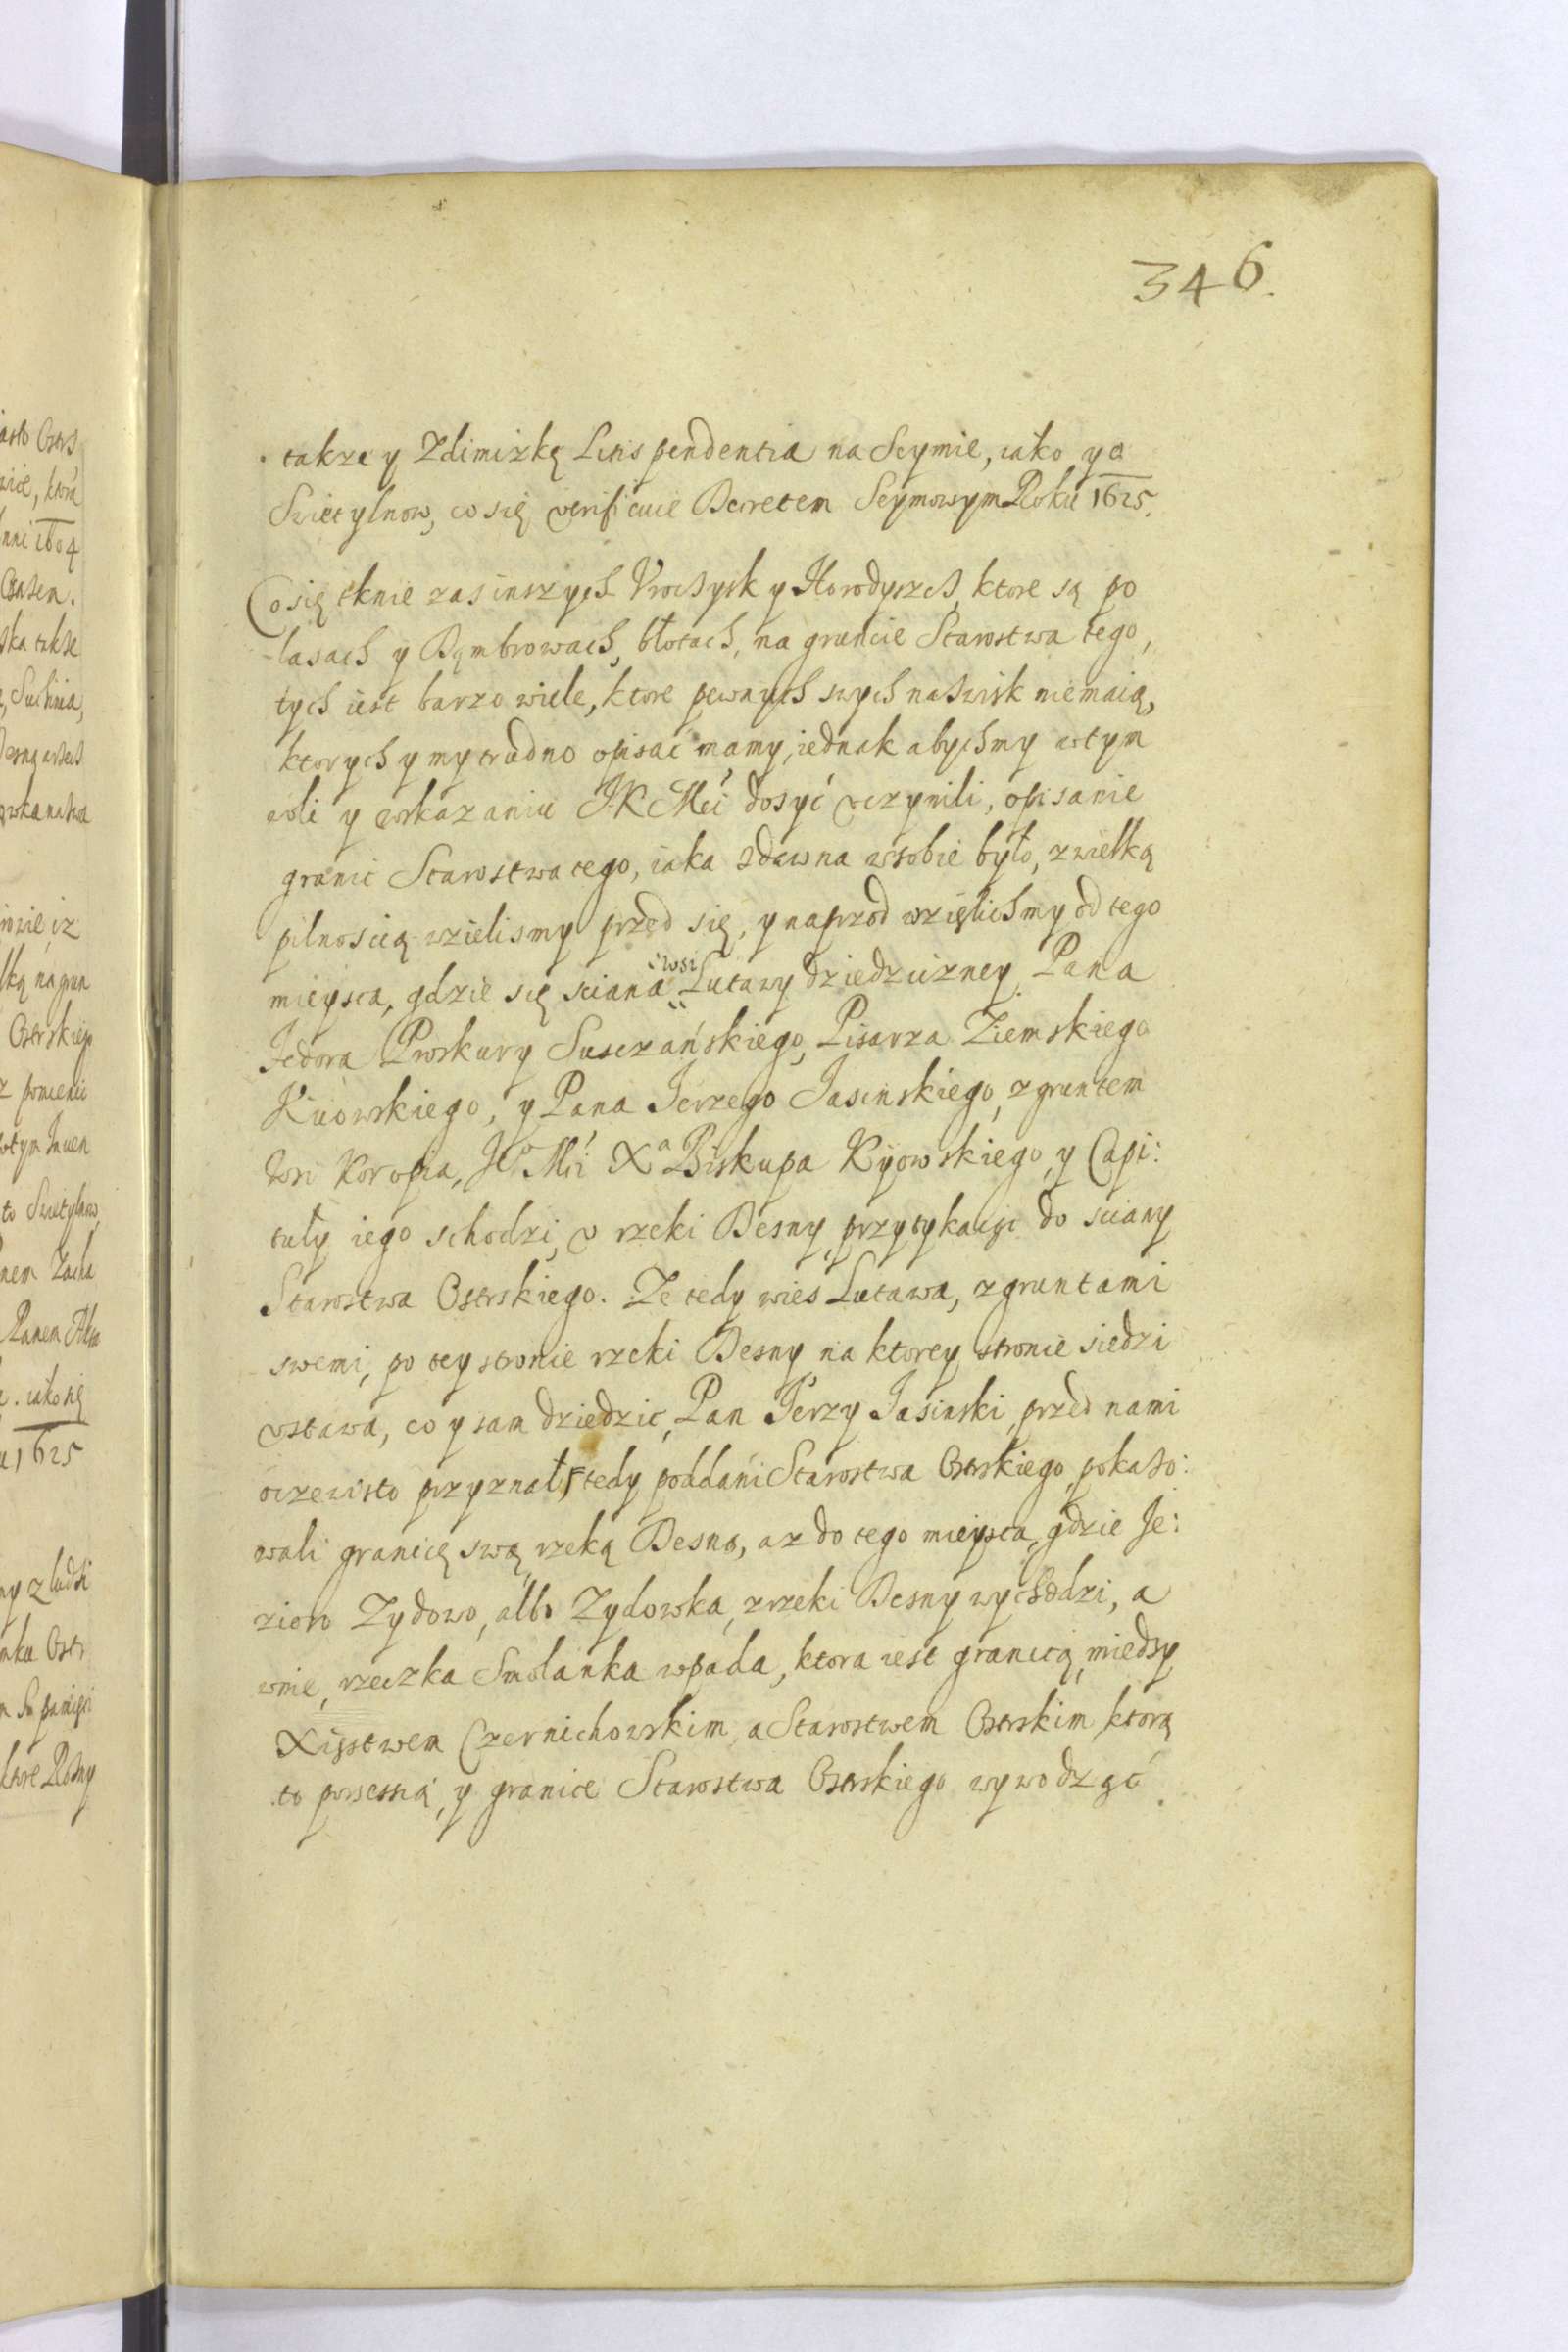 346.
takze y Zdimirką Litis pendentia na Seymie, iako y o
Swietylnow, co się verificuie Decretem Seymowym Roku 1625.
Co się tknie zas inszych Vroczysk y Horodyszcz, ktore są po
lasach y Dąmbrowach, błotach, na gruncie Starostwa tego,
tych iest barzo wiele, ktore pewnych swych nazwisk niemaią,
ktorych y my trudno opisać mamy, iednak abychmy wtym
woli y wskazaniu JKMci dosyć vczynili, opisanie
granic Starostwa tego, iaka zdawna wsobie było, zwielką
pilnoscią wzielismy przed się, y naprzod wzięlichmy od tego
mieysca, gdzie się sciana wsi Lutawy dziedziczney Pana
Fedora Proskury Susczańskiego, Pisarza Ziemskiego
Kiiowskiego, y Pana Jerzego Jasinskiego, zgruntem
Wsi Koropia, Jeo Mci Xa Biskupa Kyowskiego, y Capi:
tuły iego schodzi, v rzeki Desny, przytykaiąc do sciany
Starostwa Ostrskiego. Ze tedy wies Lutawa, zgruntami
swemi, po tey stronie rzeki Desny na ktorey stronie siedzi
vstawa, co y sam dziedzic, Pan Jerzy Jasinski, przed nami
oczewisto przyznał, tedy poddani Starostwa Ostrskiego, pokazo:
wali granicę swą rzeką Desną, az do tego mieysca, gdzie Je:
zioro Zydowo, albo Zydowka, zrzeki Desny wychodzi, a
wnie, rzeczka Smolanka wpada, ktora iest granicą, miedzy
Xięstwem Czernichowskim, a Starostwem Ostrskim, ktorą
to possessią, y granice Starostwa Ostrskiego wywodząc